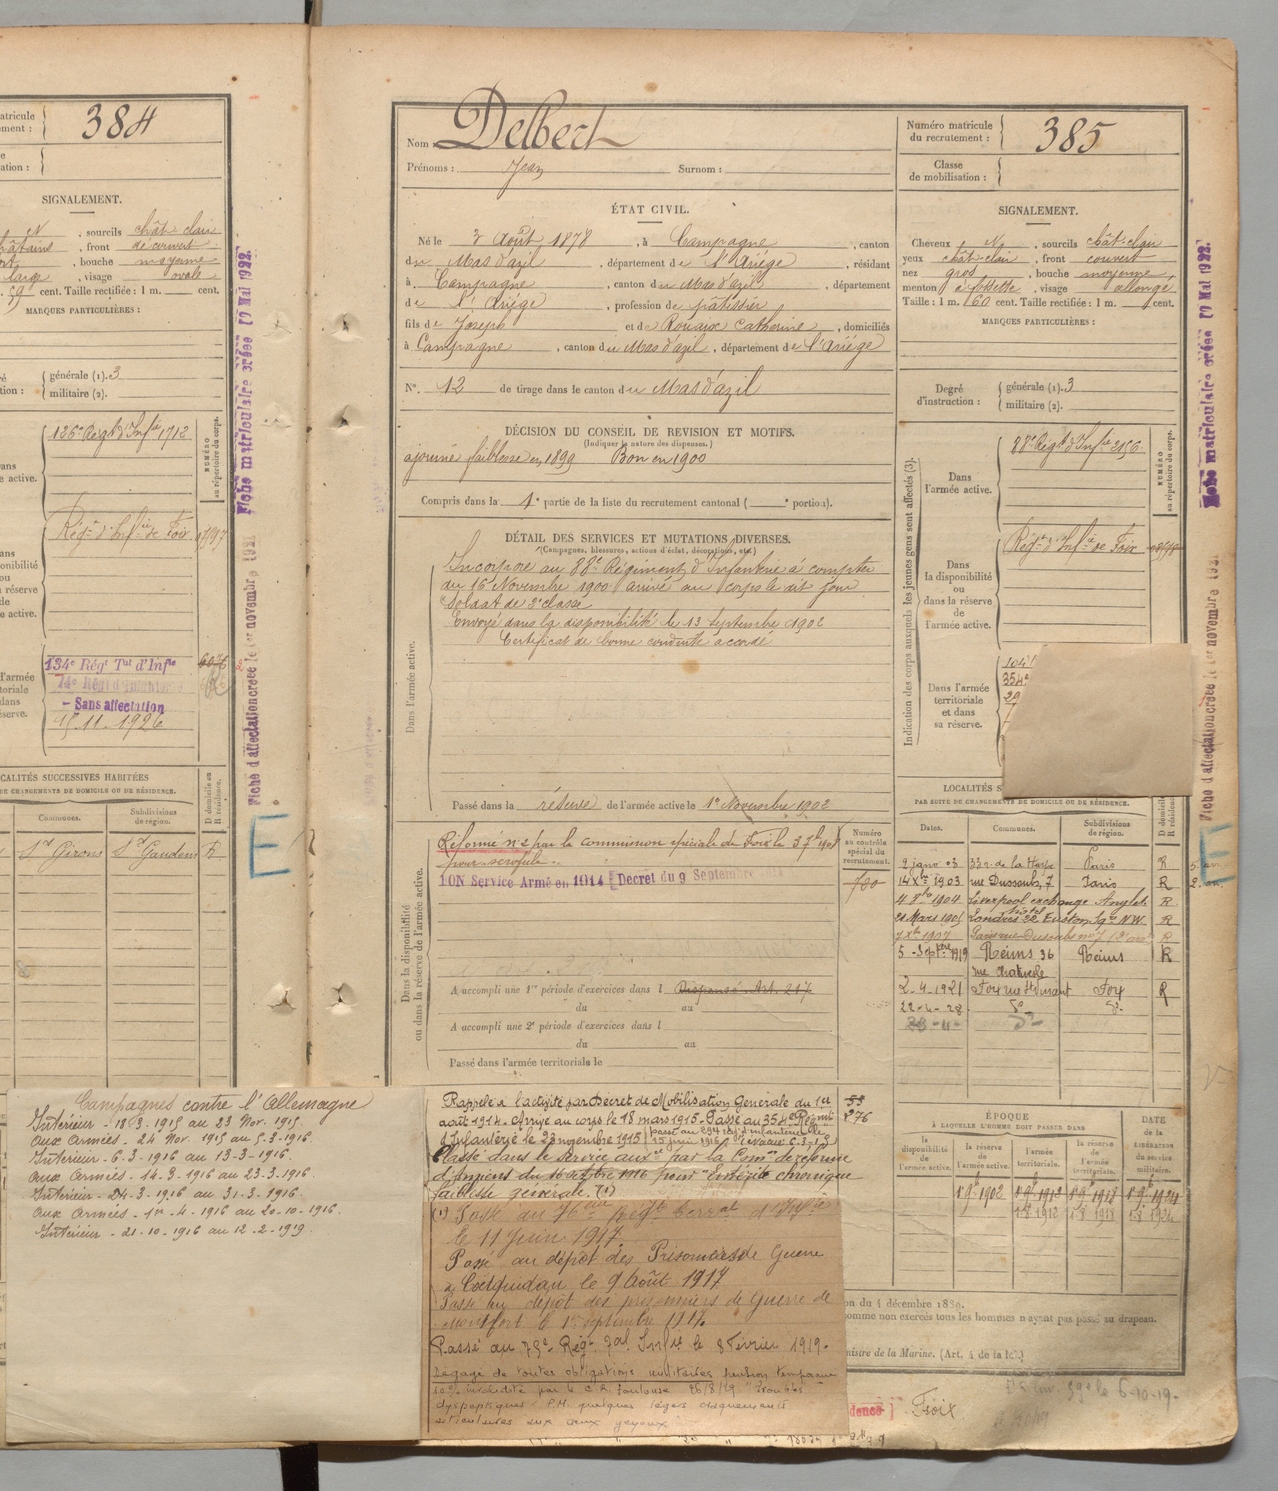 atricule
ement :
384
ation :
SIGNALEMENT.
N , sourcils chât clair
châtains , front découvert
, bouche moyenne
large , visage ovale
59 cent. Taille rectifiée : 1 m. cent.
MARQUES PARTICULIÈRES :
générale (1). 3
militaire (2).
126e Régt d'Infie 1712
NUMÉRO
au répertoire du corps.
e active.
Régt d'Infie de Foix
ponibilité
ou
a réserve
de
e active.
134e Régt Tal d'Infie
- Sans affectation
15.11.1926
l'armée
itoriale
dans
serve.
CALITÉS SUCCESSIVES HABITÉES
DE CHANGEMENTS DE DOMICILE OU DE RÉSIDENCE.
Communes.
Subdivisions
de région.
St Girons St Gaudens R
Fiche matriculaire créée 19 Mai 1922.
Fiche d'affectation créée le 1er novembre 1921
E
Nom : Delbert
Prénoms : Jean Surnom :
Numéro matricule
du recrutement : 385
Classe
de mobilisation :
ÉTAT CIVIL.
Né le 3 Août 1878 , à Campagne , canton
du Mas d'azil , département de l'Ariège , résidant
à Campagne , canton du Mas d'azil , département
de l'Ariège , profession de pâtissier
fils de Joseph et de Rouaix Catherine , domiciliés
à Campagne , canton du Mas d'azil , département de l'Ariège
N°. 12 de tirage dans le canton du Mas d'azil
SIGNALEMENT.
Cheveux N , sourcils chât-clair
yeux chât-clair , front couvert
nez gros , bouche moyenne
menton à fossette , visage allongé
Taille : 1 m. 60 cent. Taille rectifiée : 1 m. cent.
MARQUES PARTICULIÈRES :
Degré
d'instruction :
générale (1). 3
militaire (2).
DÉCISION DU CONSEIL DE REVISION ET MOTIFS.
(Indiquer la nature des dispenses.)
ajourné faiblesse en 1899 Bon en 1900
Compris dans la 1e partie de la liste du recrutement cantonal ( e portion).
DÉTAIL DES SERVICES ET MUTATIONS DIVERSES.
(Campagnes, blessures, actions d'éclat, décorations, etc.)
Dans l'armée active.
Incorporé au 88e Régiment d'Infanterie à compter
du 16 Novembre 1900 arrivé au corps le dit jour
Soldat de 2e classe
Envoyé dans la disponibilité le 13 Septembre 1902
Certificat de bonne conduite accordé
Passé dans la réserve de l'armée active le 1er Novembre 1902
Indication des corps auxquels les jeunes gens sont affectés (3).
Dans
l'armée active.
88e Régt d'Infie 2156
NUMÉRO
au répertoire du corps.
Dans
la disponibilité
ou
dans la réserve
de
l'armée active.
Régt d'Infie de Foix
Dans l'armée
territoriale
et dans
sa réserve.
104
354e
29
LOCALITÉS S
PAR SUITE DE CHANGEMENTS DE DOMICILE OU DE RÉSIDENCE.
Dates. Communes. Subdivisions
de région.
2 janv 03 33 r. de la Harpe Paris R
14 Xbre 1903 rue Dussoubs, 7 Paris R
4 8bre 1904 Liverpool exchange hotel Anglet. R
21 Mars 1905 Londres 32 Euston Sqre N.W. R
7 Xbre 1907 Paris rue Dussoubs no 7 R
5 Septbre 1919 Reims 36 Reims R
rue
2-4-1921 Foix rue Foix R
22-4-28 do do
Dans la disponibilité
ou dans la réserve de l'armée active.
Réformé no 2 par la commission spéciale de Foix le 3 7bre 1908
pour scrofule.
BON Service Armé en 1914 Décret du 9 Septembre
Numéro
au contrôle
spécial du
recrutement.
700
A accompli une 1re période d'exercices dans l Dispensé Art. 217
du au
A accompli une 2e période d'exercices dans l
du au
Passé dans l'armée territoriale le
Rappelé à l'activité par Décret de Mobilisation Générale du 1er
août 1914. Arrivé au corps le 18 mars 1915. Passé au 354e Régiment
d'Infanterie le 23 novembre 1915
Classé dans le service auxre par la Comon de réforme
d'Amiens du 16 octobre 1916 pour "Entérite chronique
faiblesse générale. (1)
53
276
(1) Passé au 76ème Régt Terral d'Infie
le 11 Juin 1917
Passé au dépôt des Prisonniers de Guerre
à Coëtquidan le 9 Août 1917
Passé au dépôt des prisonniers de Guerre de
Montfort le 1er septembre 1917.
Passé au 75e Régt Tal Infie le 8 Février 1919.
Dégagé de toutes obligations militaires pension temporaire
10% invalidité par la C.R. Toulouse 26/8/29 "Troubles
dyspeptiques P.M. quelques légers craquements
articulaires aux deux genoux
Campagnes contre l'Allemagne
Intérieur - 18-3-1915 au 23 Nov. 1915.
Aux Armées - 24 Nov. 1915 au 5-3-1916.
Intérieur - 6-3-1916 au 13-3-1916.
Aux Armées - 14-3-1916 au 23-3-1916.
Intérieur - 24-3-1916 au 31-3-1916.
Aux Armées - 1er-4-1916 au 20-10-1916.
Intérieur - 21-10-1916 au 12-2-1919.
ÉPOQUE
À LAQUELLE L'HOMME DOIT PASSER DANS
la
disponibilité
de
l'armée active.
la réserve
de
l'armée active.
l'armée
territoriale.
la réserve
de
l'armée
territoriale.
DATE
de la
LIBÉRATION
du service
militaire.
1 9bre 1902 1 9bre 1912 1 9bre 1918 1 9bre 1924
1-8 1912 1-8 1918 1-8 1924
on du 4 décembre 1889.
omme non exercés tous les hommes n'ayant pas passé au drapeau.
nistre de la Marine. (Art. 4 de la loi.)
dence ] Foix
6-10-19-
Fiche matriculaire créée 19 Mai 1922.
Fiche d'affectation créée le 1er novembre 1921
E